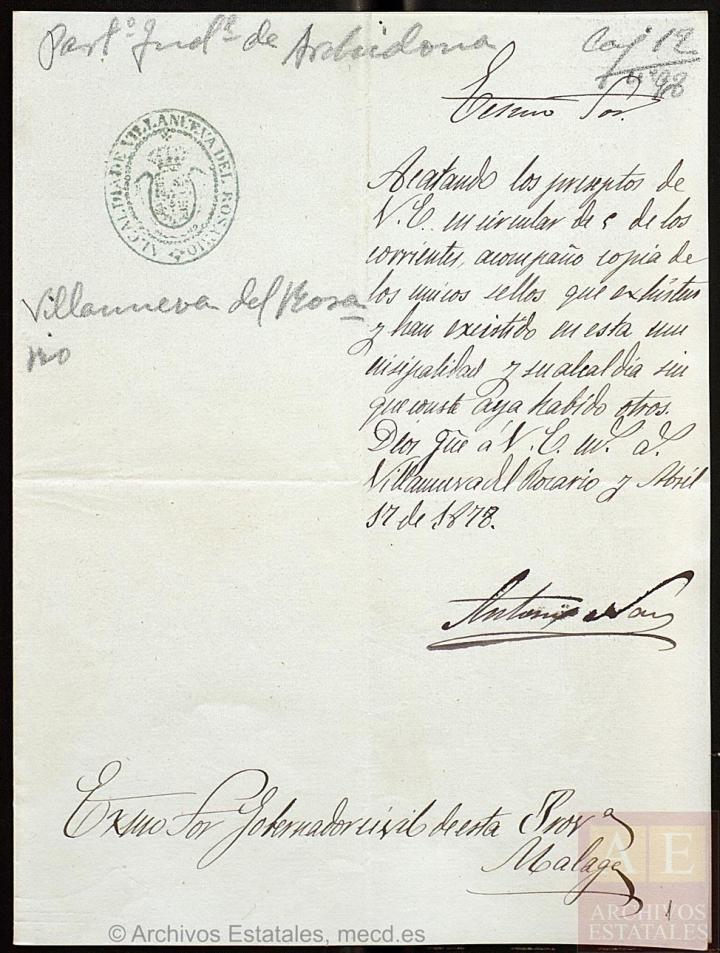 Partº Judl de Archidona
Caj 12
nº 98
Excmo Sor.
ALCALDIA DE VILLANUEVA DEL ROSARIO
Villanueva del Rosa
rio
Acatando los preseptos de
V. E. en circular de 5 de los
corrientes, acompaño copia de
los unicos sellos que exhisten
y han existido en esta mu
nisipalidad y su alcaldia sin
que conste aya habido otros.
Dios gūe á V. E. ms. as.
Villanueva del Rosario y Abril
17 de 1878.
Antonio
Exmo Sor Gobernador civil de esta Prova
Malaga
1
AE
ARCHIVOS
ESTATALES
© Archivos Estatales, mecd.es